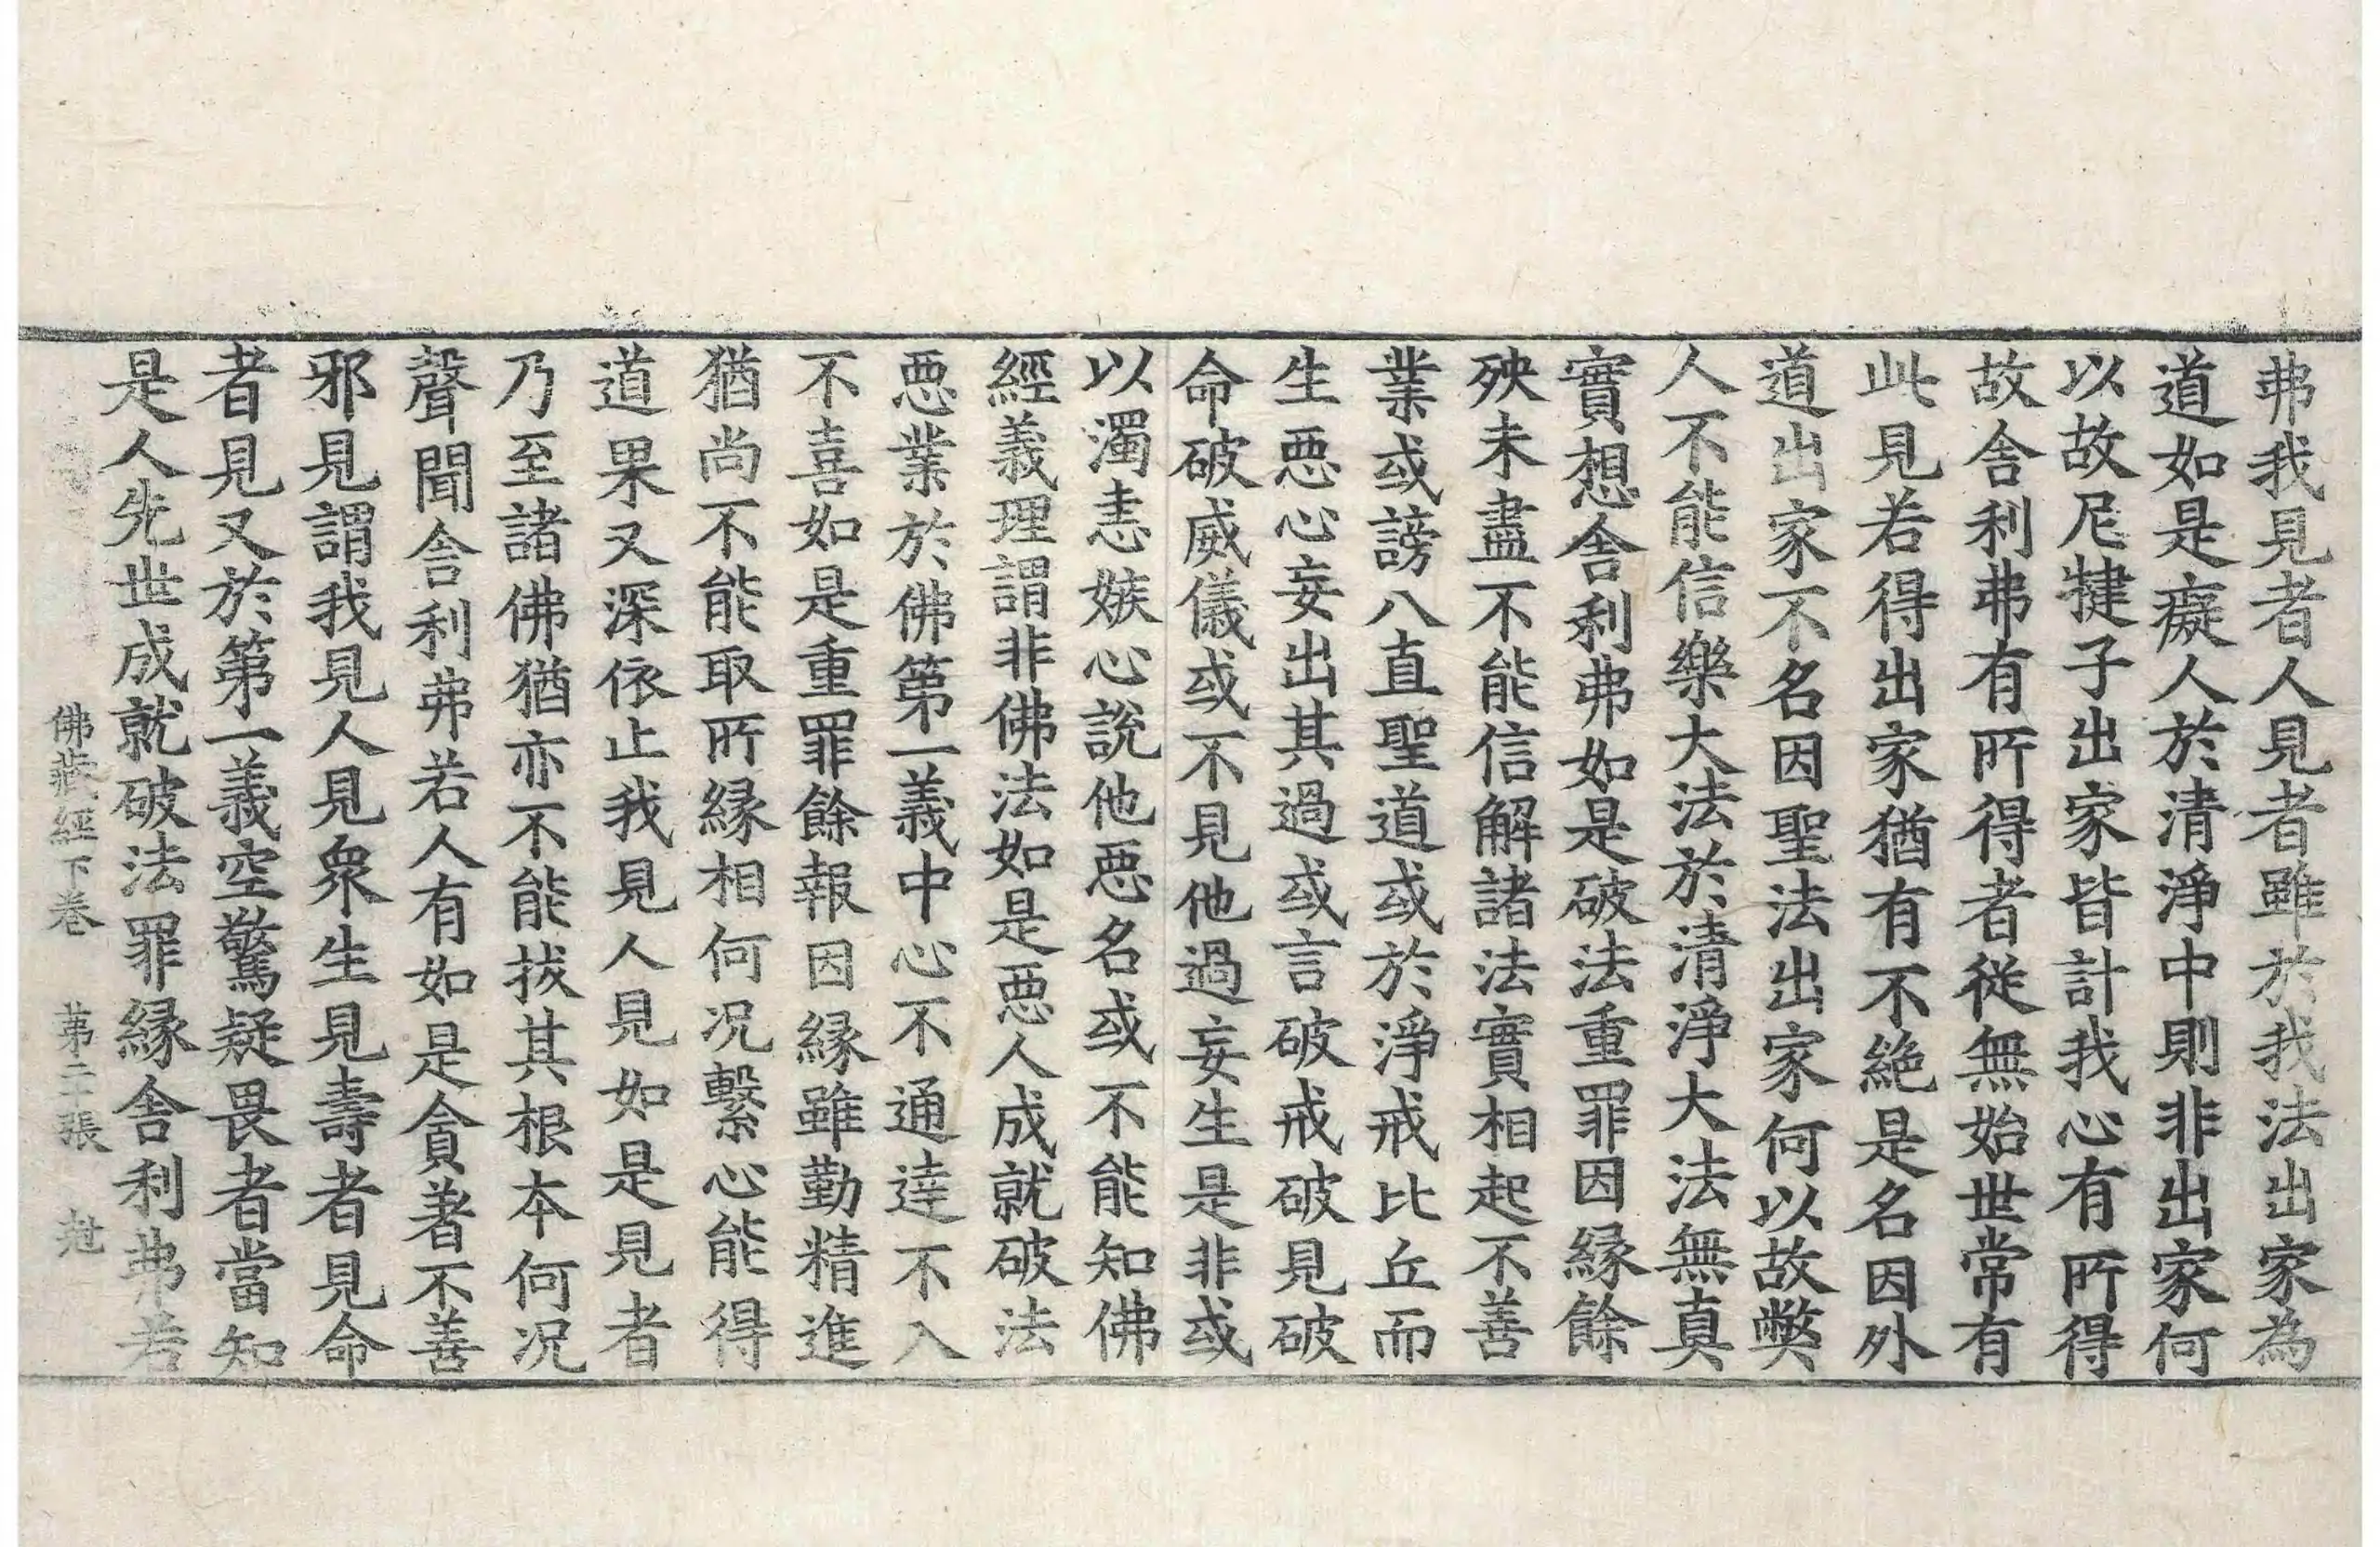 弗我見者人見者雖於我法出家為
道如是癡人於清淨中則非出家何
以故尼揵子出家皆計我心有所得
故舎利弗有所得者從無始世常有
此見若得出家猶有不絶是名因外
道出家不名因聖法出家何以故弊
人不能信樂大法於清淨大法無真
實想舎利弗如是破法重罪因縁餘
殃未盡不能信解諸法實相起不善
業或謗八直聖道或於淨戒比丘而
生惡心妄出其過或言破戒破見破
命破威儀或不見他過妄生是非或
以濁恚嫉心說他惡名或不能知佛
經義理謂非佛法如是惡人成就破法
惡業於佛第一義中心不通達不入
不喜如是重罪餘報因縁雖勤精進
猶尚不能取所縁相何况繫心能得
道果又深依止我見人見如是見者
乃至諸佛猶亦不能拔其根本何况
聲聞舎利弗若人有如是貪著不善
邪見謂我見人見衆生見壽者見命
者見又於第一義空驚疑畏者當知
是人先世成就破法罪縁舎利弗若
佛藏經下卷　第二十張